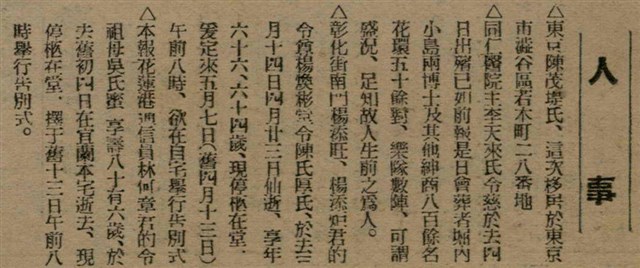 人事
△東京陳茂堤氏、這次移居於東京
市澁谷區若木町二八番地
△同仁醫院主李天來氏令慈於去四
日出殯已如前報是日會葬者堀內
小島兩博士及其他紳商八百餘名
花環五十餘對、樂隊數陣、可謂
盛況、足知故人生前之爲人。
△彰化街南門楊添旺、楊添炉君的
令尊楊煥彬、令堂陳氏厚氏、於去三
月十四日四月廿三日仙逝、享年
六十六、六十四歲、現停柩在堂、
爰定來五月七日（舊四月十三日）
午前八時、欲在自宅舉行告別式
△本報花蓮港通信員林何章君的令
祖母吳氏蜜、享壽八十有六歲、於
去舊初四日在宜蘭本宅逝去、現
停柩在堂、擇于舊十三日午前八
時舉行告別式。